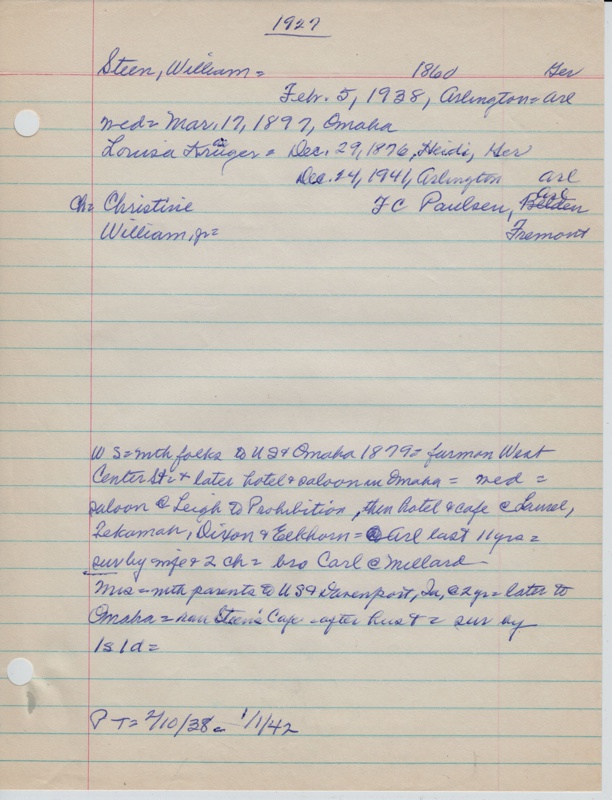 1927
Steen, William = 1860 Ger
Feb. 5, 1938, Arlington = arl
wed = Mar. 17, 1897, Omaha
Louisa Krüger = Dec. 29, 1876, Heidi, Ger
Dec. 24, 1941, Arlington arl
ch = Christine F C Paulsen, arl
William, jr = Fremont
W S = with folks to US & Omaha 1879 = farm on West
Center St. & later hotel & saloon in Omaha = wed =
saloon @ Leigh to Prohibition, then hotel & cafe @ Laurel,
Tekamah, Dixon & Elkhorn = @ arl last 11 yrs =
sur by wife & 2 ch = bro Carl @ Millard
Mrs = with parents to US & Davenport, Ia, @ 2 yr = later to
Omaha = ran Steen's Cafe after hus d = sur by
1 s 1 d =
P T = 2/10/38 = 1/1/42